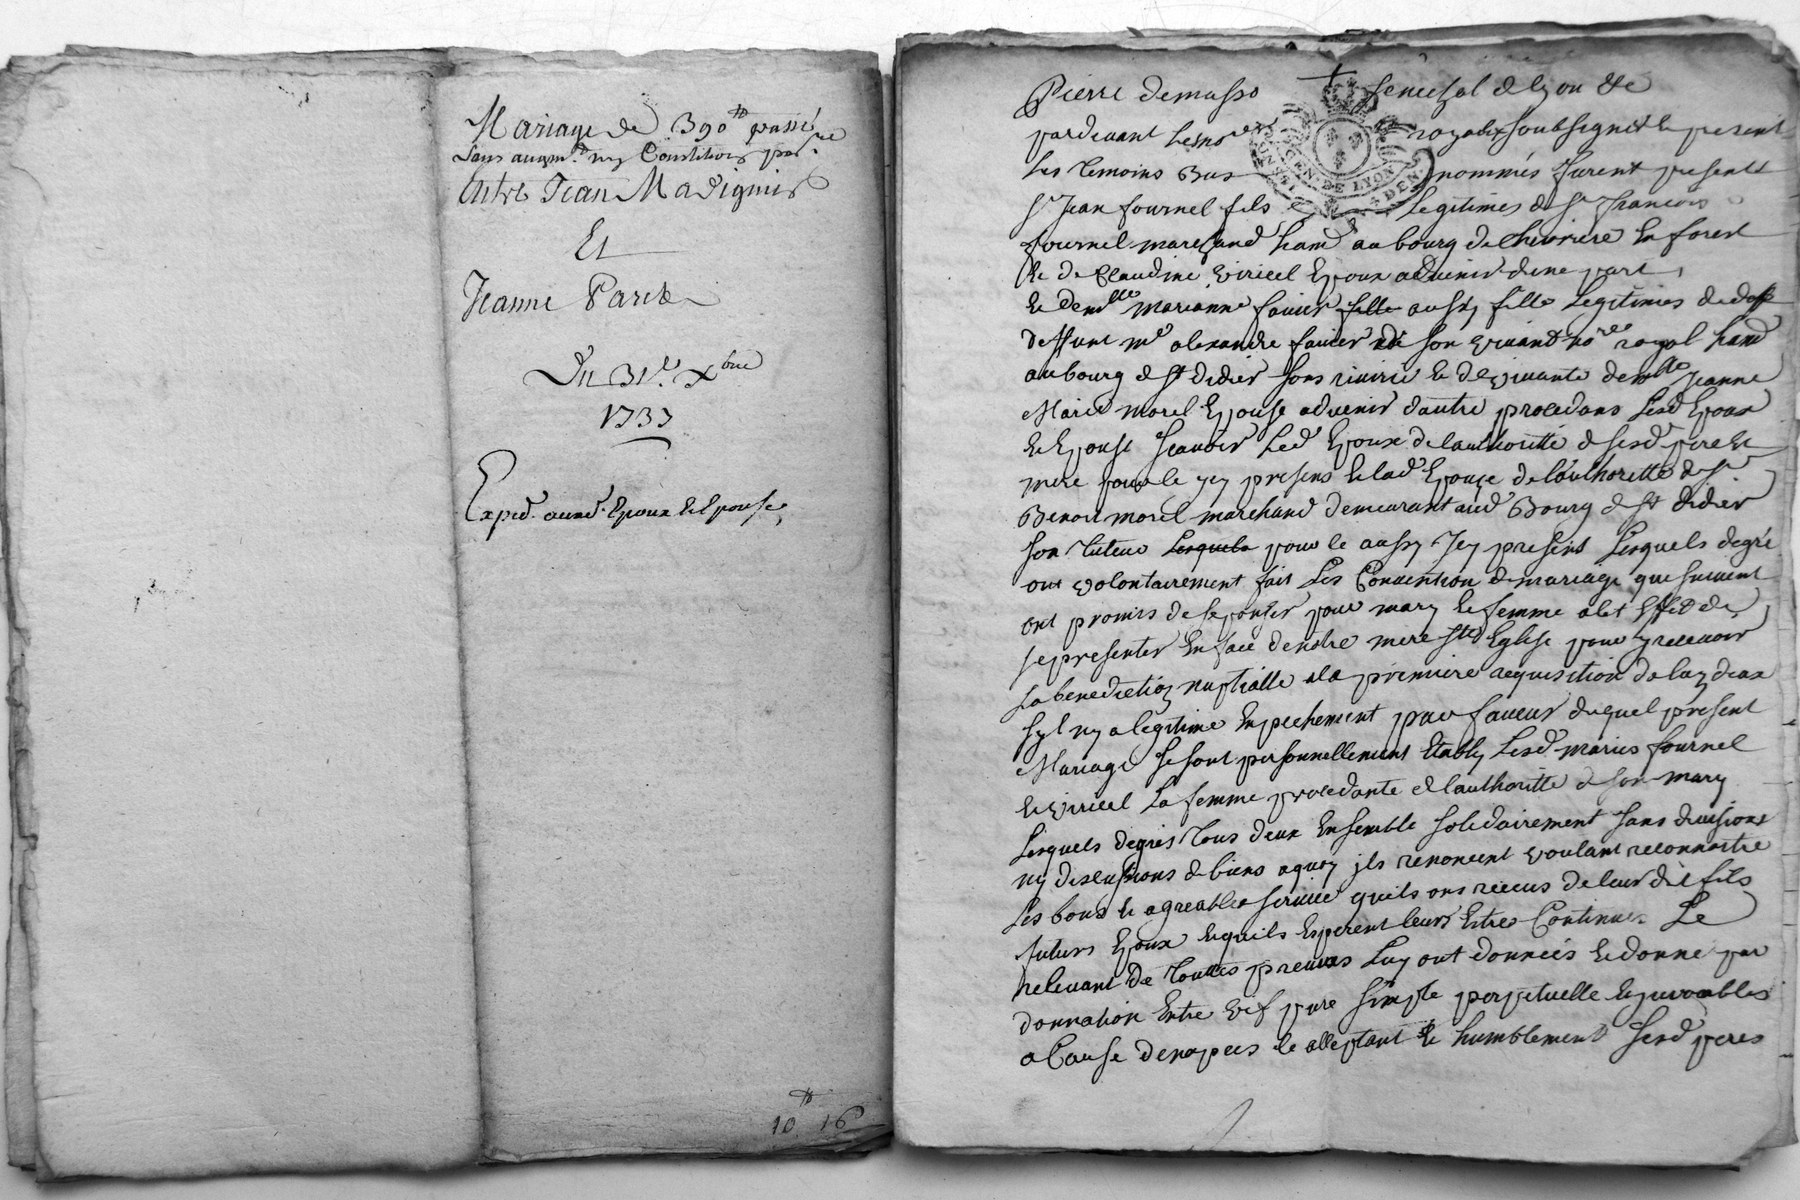 Mariage de 390tt passé
sans augm.on ny Constitution par
Entre Jean Madignier
Et
Jeanne Paret
Du 31e Xbre
1737
Exped. auxd. Epoux & Epouse
10tt 16s
Pierre demasso senechal de lyon &c
pardevant les nores royaux soubsignet & present
les temoins bas nommés furent presents
sr Jean fournel fils legitimes de sr francois
fournel marchand hant au bourg de chevriere en forest
et de Claudine viricel Epoux advenir dune part
et demlle marianne favier fille aussy fille legitimes de
deffunt me alexandre favier son vivant nore royal hant
au bourg de st didier sous riverie et de vivante demlle Jeanne
Marie morel Epouse advenir dautre procedans lesd Epoux
et Epouse scavoir led Epoux de lauthoritté de sesd pere et
mere pour ce icy presens et lad Epouse de lauthoritté de sr
Benoit morel marchand demeurant aud Bourg de st didier
son tuteur Lesquels pour ce aussy icy present Lesquels de gré
ont volontairement fait les Convention de mariage que suivent
ont promis de sepouser pour mary et femme a cet effet de
se presenter En face de notre mere ste Eglise pour y recevoir
la benediction nuptialle a la premiere requisition de luy deux
syl ny a legitime Enpechement pour faveur duquel present
Mariage se sont personnellement Etably lesd maries fournel
et viricel La femme procedante de lauthoritté de son mary
Lesquels de gres tous deux Ensemble solidairement sans divisions
ny discussions de biens a quoy ils renoncent voulant reconnoitre
les bons et agreables service quils ont recus de leur dit fils
futurs Epoux et quils Esperent leurs Estre Continues Le
relevant de touttes preuves Luy ont donnés et donne par
donnation Entre vif pure simple perpetuelle et irrevocables
a Cause de nopces ce acceptant et humblement sesd peres